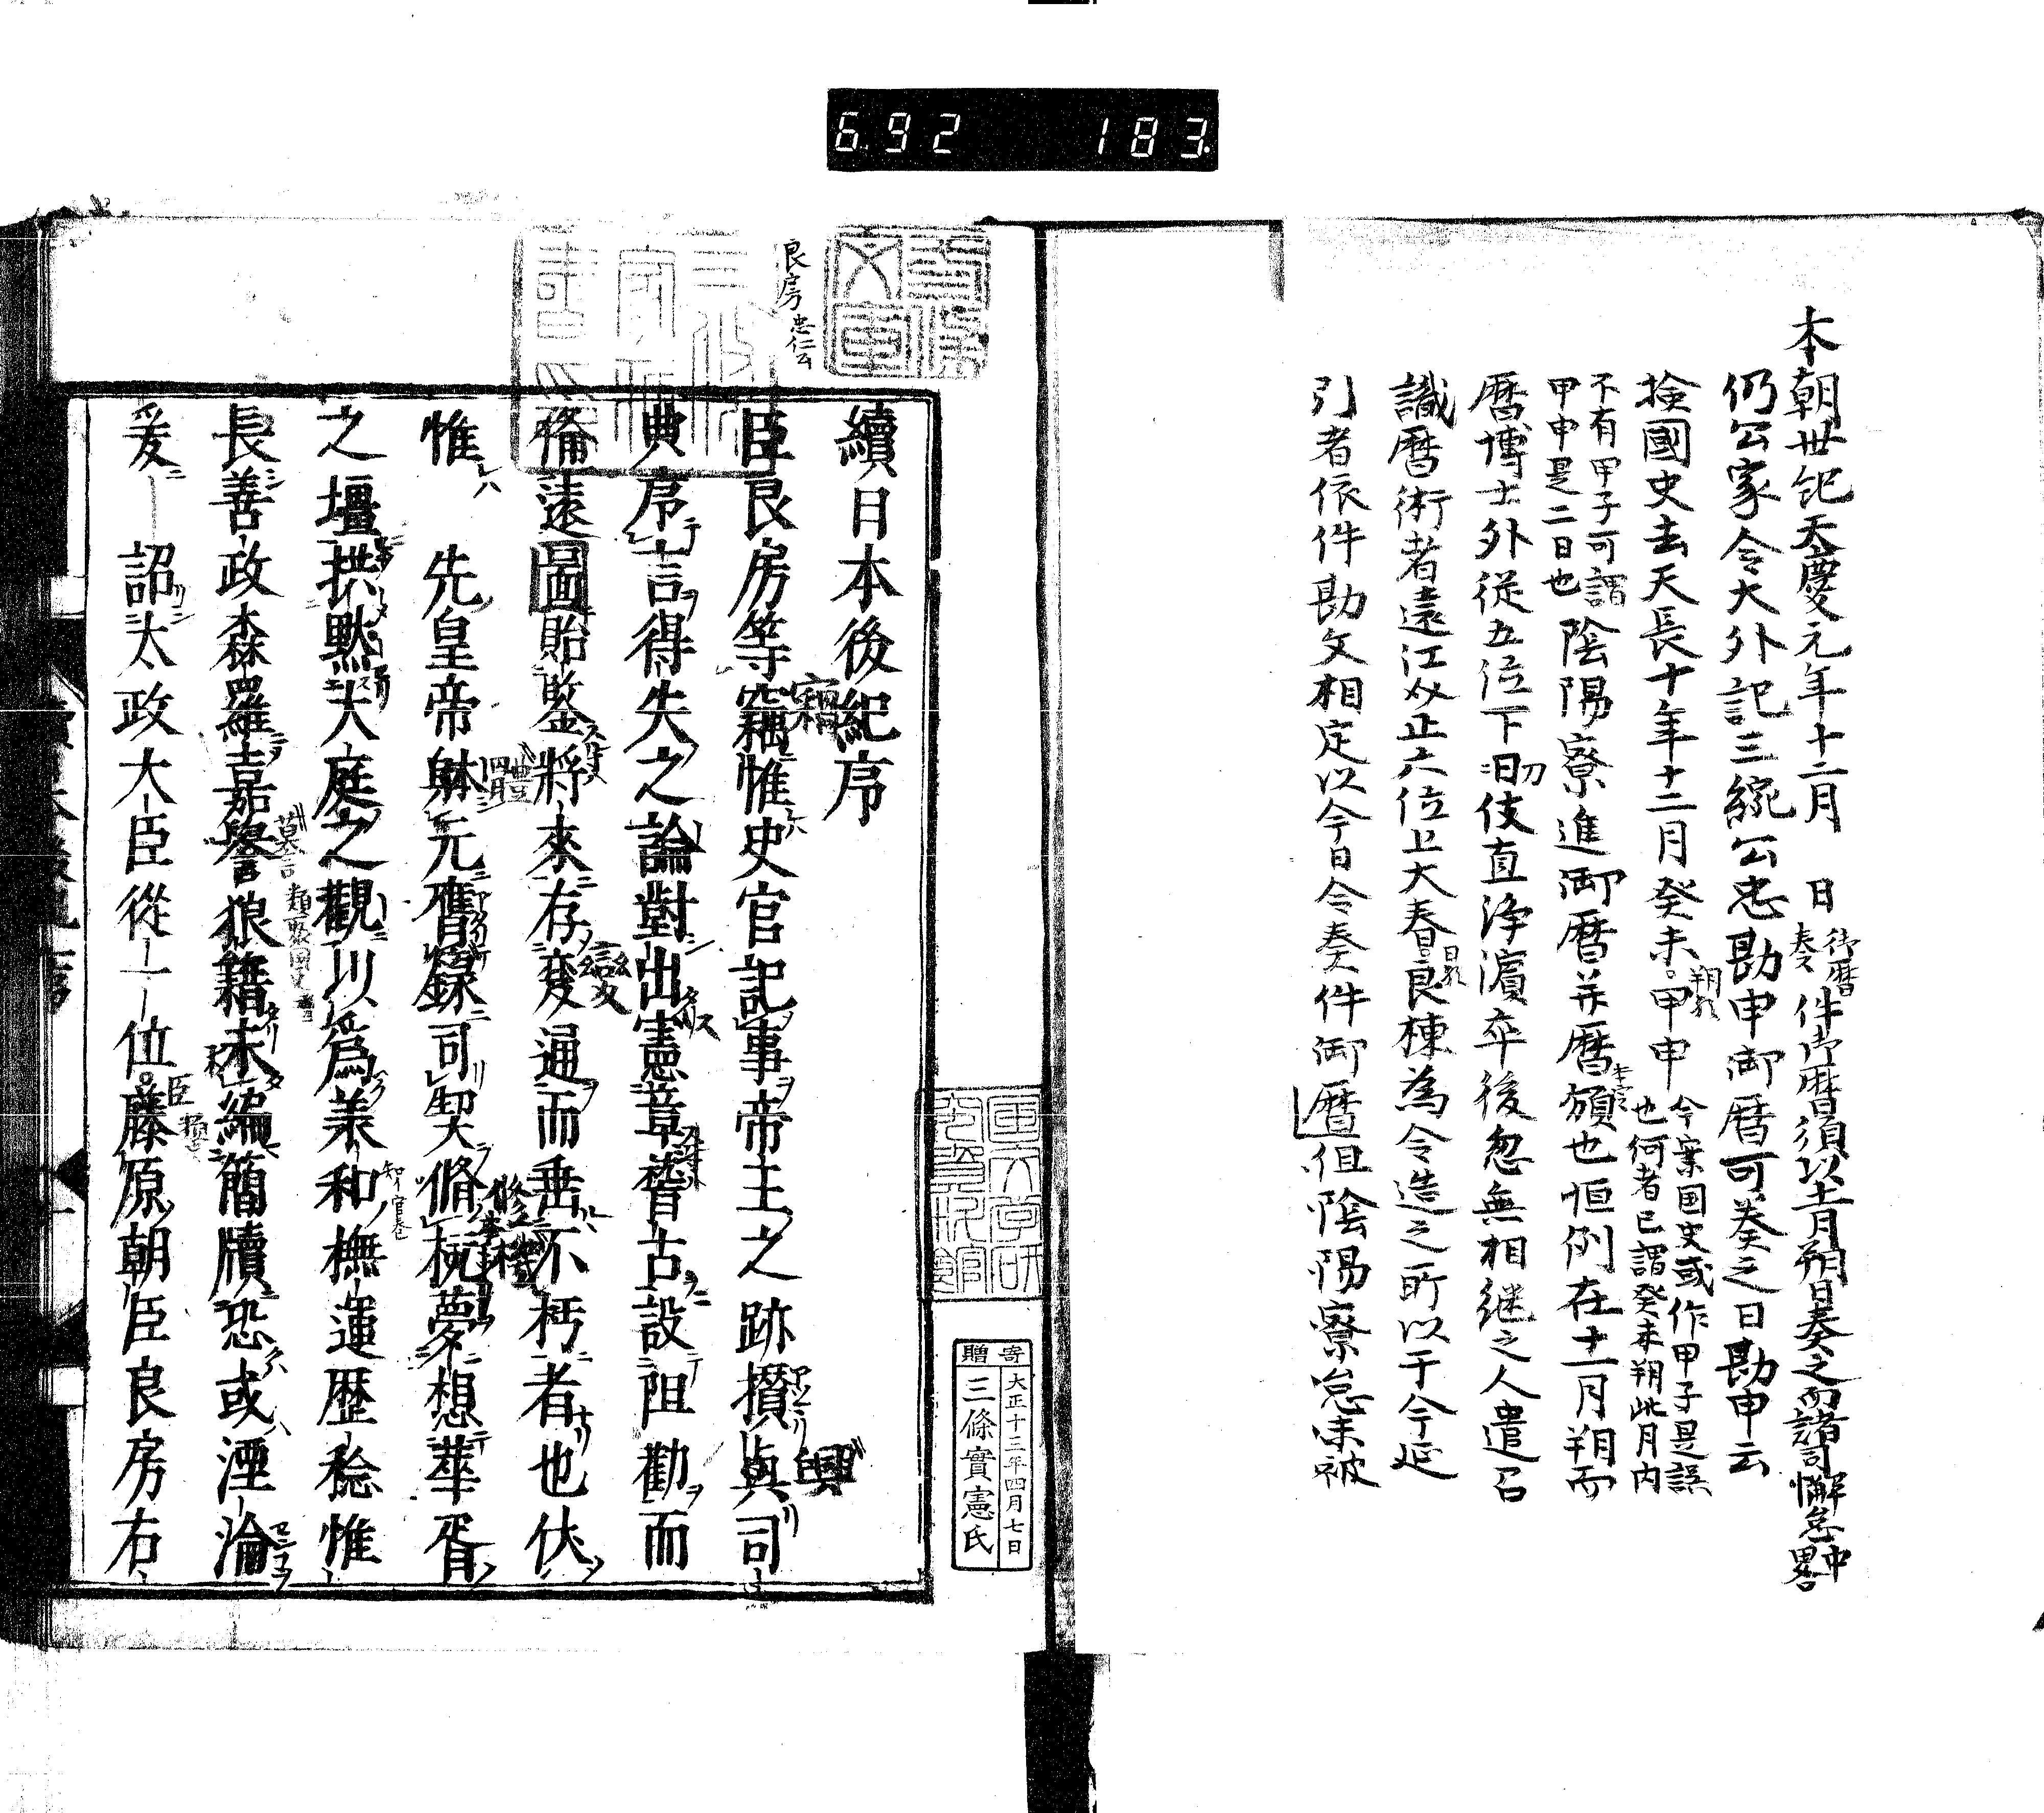 692 183
本朝世紀天慶元年十二月 日
御暦
奏
件御暦須以十一月朔日奏之而諸司懈怠中畧
仍公家令大外記三統公忠勘申御暦可奏之日勘申云
撿國史去天長十年十二月癸未甲申
朔歟
今案国史或作甲子是誤
也何者已謂癸未朔此月内
不有甲子可謂
甲申是二日也
陰陽寮進御暦并暦頒也恒例在十一月朔而
暦博士外従五位下刀伎直浄濱卒後忽無相継之人遣召
識暦術者遠江从正六位上大春良棟為令造之所以于今延
日歟
引者依件勘文相定以今日令奏件御暦但陰陽寮怠未被
良房忠仁公
續日本後紀序
臣良房等竊惟史官記事帝王之跡攅與司
典序言得失之論對出憲章稽古設沮勸而
備遠圖貽鑒將來存変通而垂不朽者也伏
惟 先皇帝躰元膺籙司契脩梡夢想華胥
之壇拱默大庭之觀以爲美和撫運歴稔惟
長善政森羅嘉譽狼籍未編簡牘恐或湮淪
爰 詔太政大臣從一位藤原朝臣良房右
竊
興
變
體
修
臣
類聚國史
寄贈
大正十三年四月七日
三條實憲氏